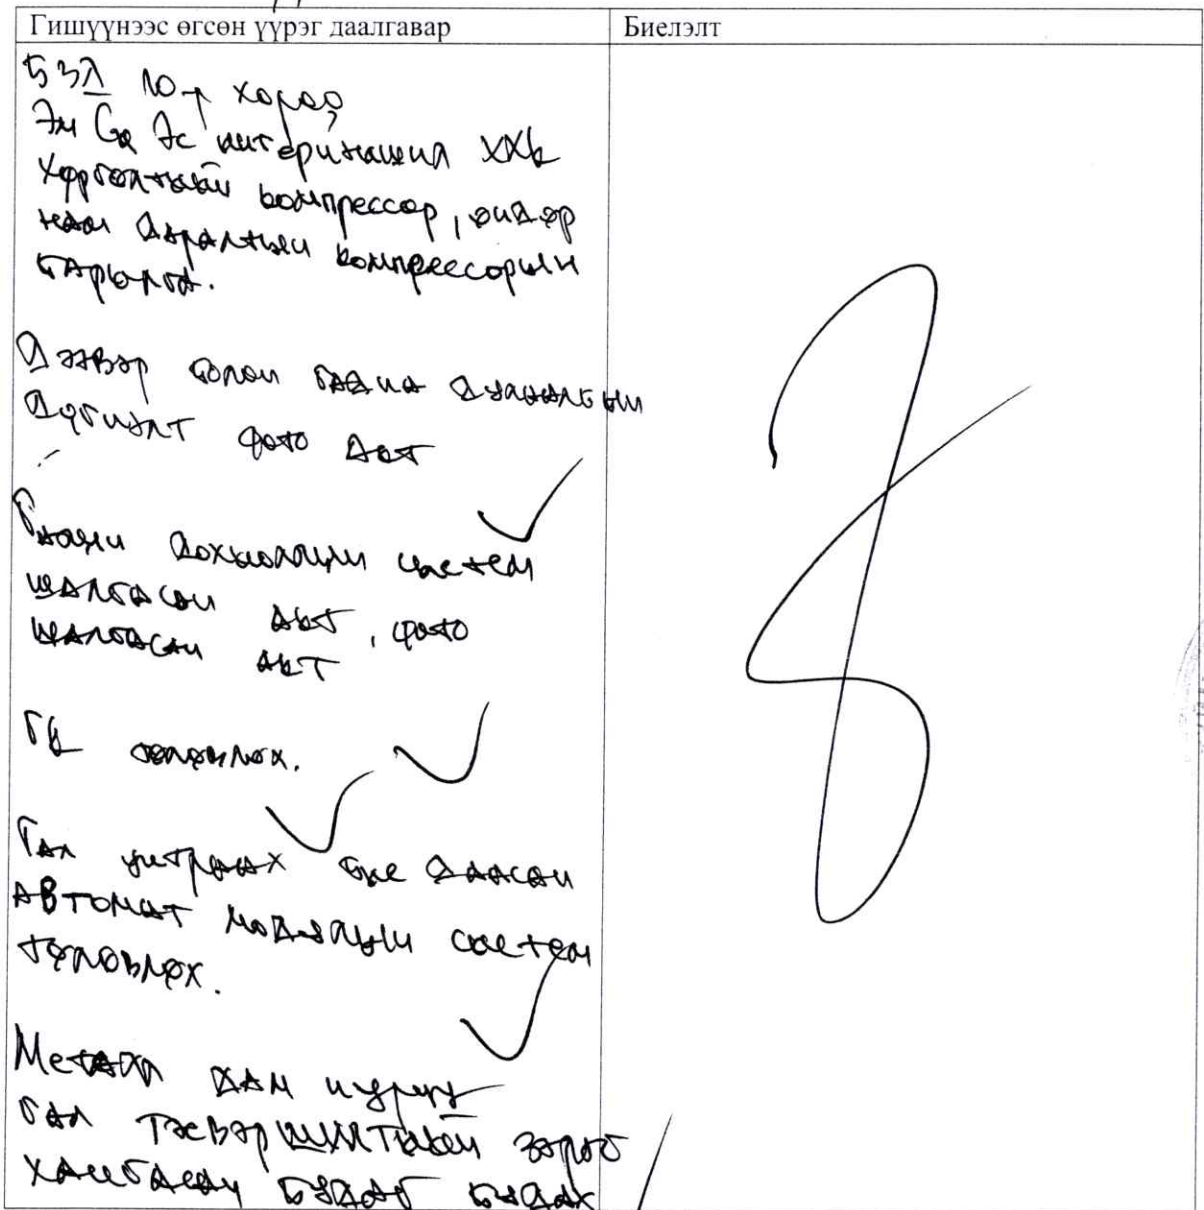 Гишүүнээс өгсөн үүрэг даалгавар
Биелэлт
БЗД 10-р хороо
Эм Си Эс интернэшнл ХХК
Хөргөлтийн компрессор, өндөр
нам даралтын компрессорын
барилга.
Дээвэр болон гадна дулаалгын
Дүгнэлт фото акт
Галын дохиоллын систем
шалгасан акт, фото
шалгасан акт
ГК төлөвлөх.
Гал унтраах бие даасан
автомат модулын систем
төлөвлөх.
Металл дам нуруу
гал тэсвэршилтийн зэрэг
хангасан будаг будах